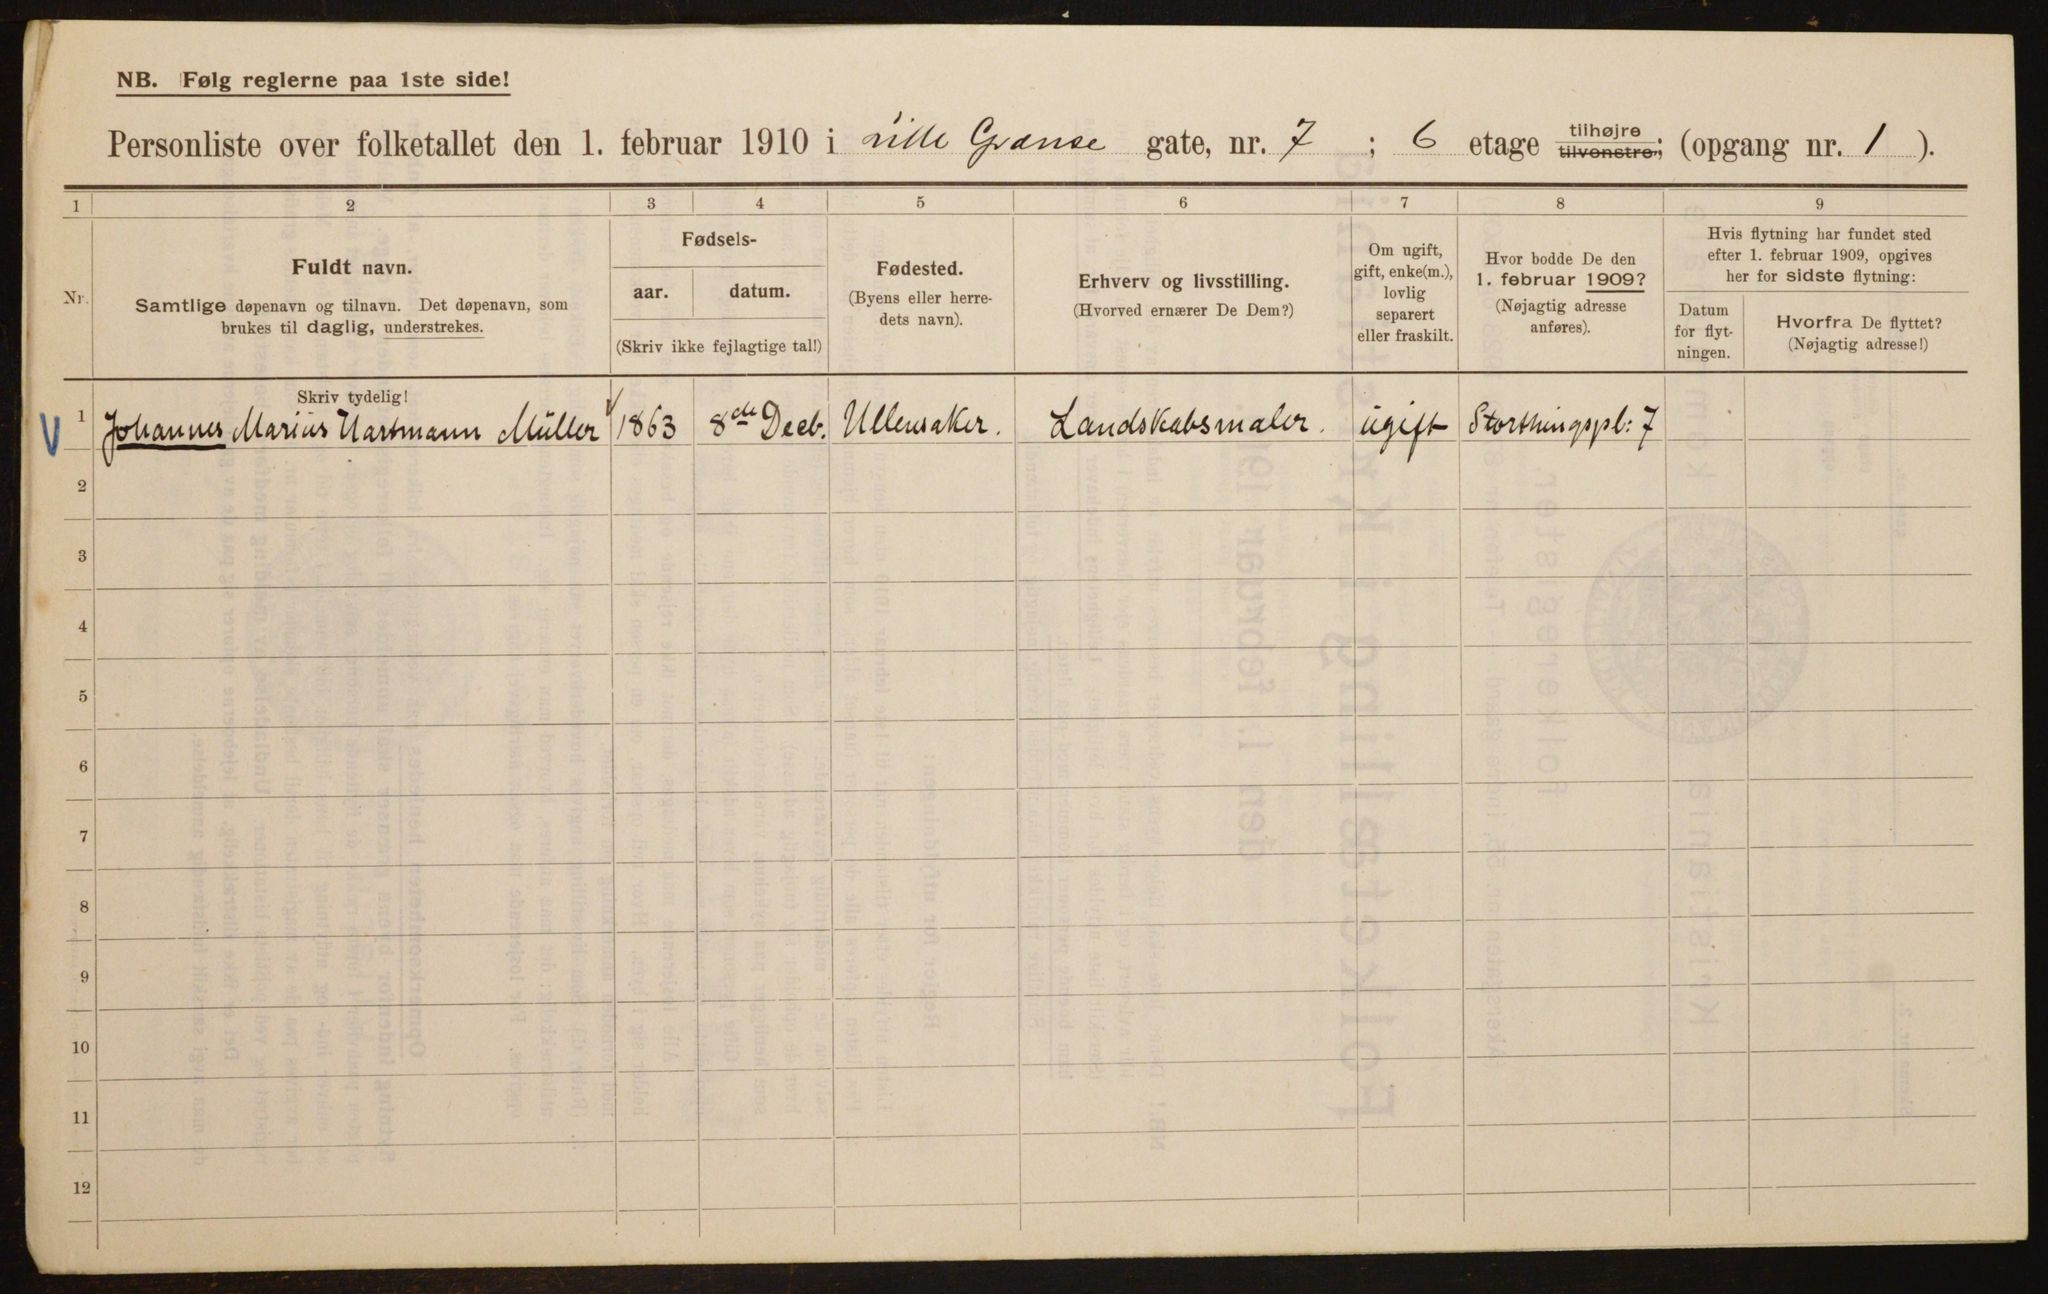 NB. Følg reglerne paa 1ste side!
Personliste over folketallet den 1. februar 1910 i Lille Grænse gate, nr. 7 ; 6 etage tilhøjre tilvenstre; (opgang nr. 1 ).
1 2 3 4 5 6 7 8 9
Nr.
Fuldt navn.
Samtlige døpenavn og tilnavn. Det døpenavn, som
brukes til daglig, understrekes.
Fødsels-
aar. datum.
(Skriv ikke fejlagtige tal!)
Fødested.
(Byens eller herre-
dets navn).
Erhverv og livsstilling.
(Hvorved ernærer De Dem?)
Om ugift,
gift, enke(m.),
lovlig
separert
eller fraskilt.
Hvor bodde De den
1. februar 1909?
(Nøjagtig adresse
anføres).
Hvis flytning har fundet sted
efter 1. februar 1909, opgives
her for sidste flytning:
Datum
for flyt-
ningen.
Hvorfra De flyttet?
(Nøjagtig adresse!)
Skriv tydelig!
V 1 Johannes Marius Hartmann Müller 1863 8de Decb. Ullensaker. Landskabsmaler. ugift Storthingspl: 7
2
3
4
5
6
7
8
9
10
11
12